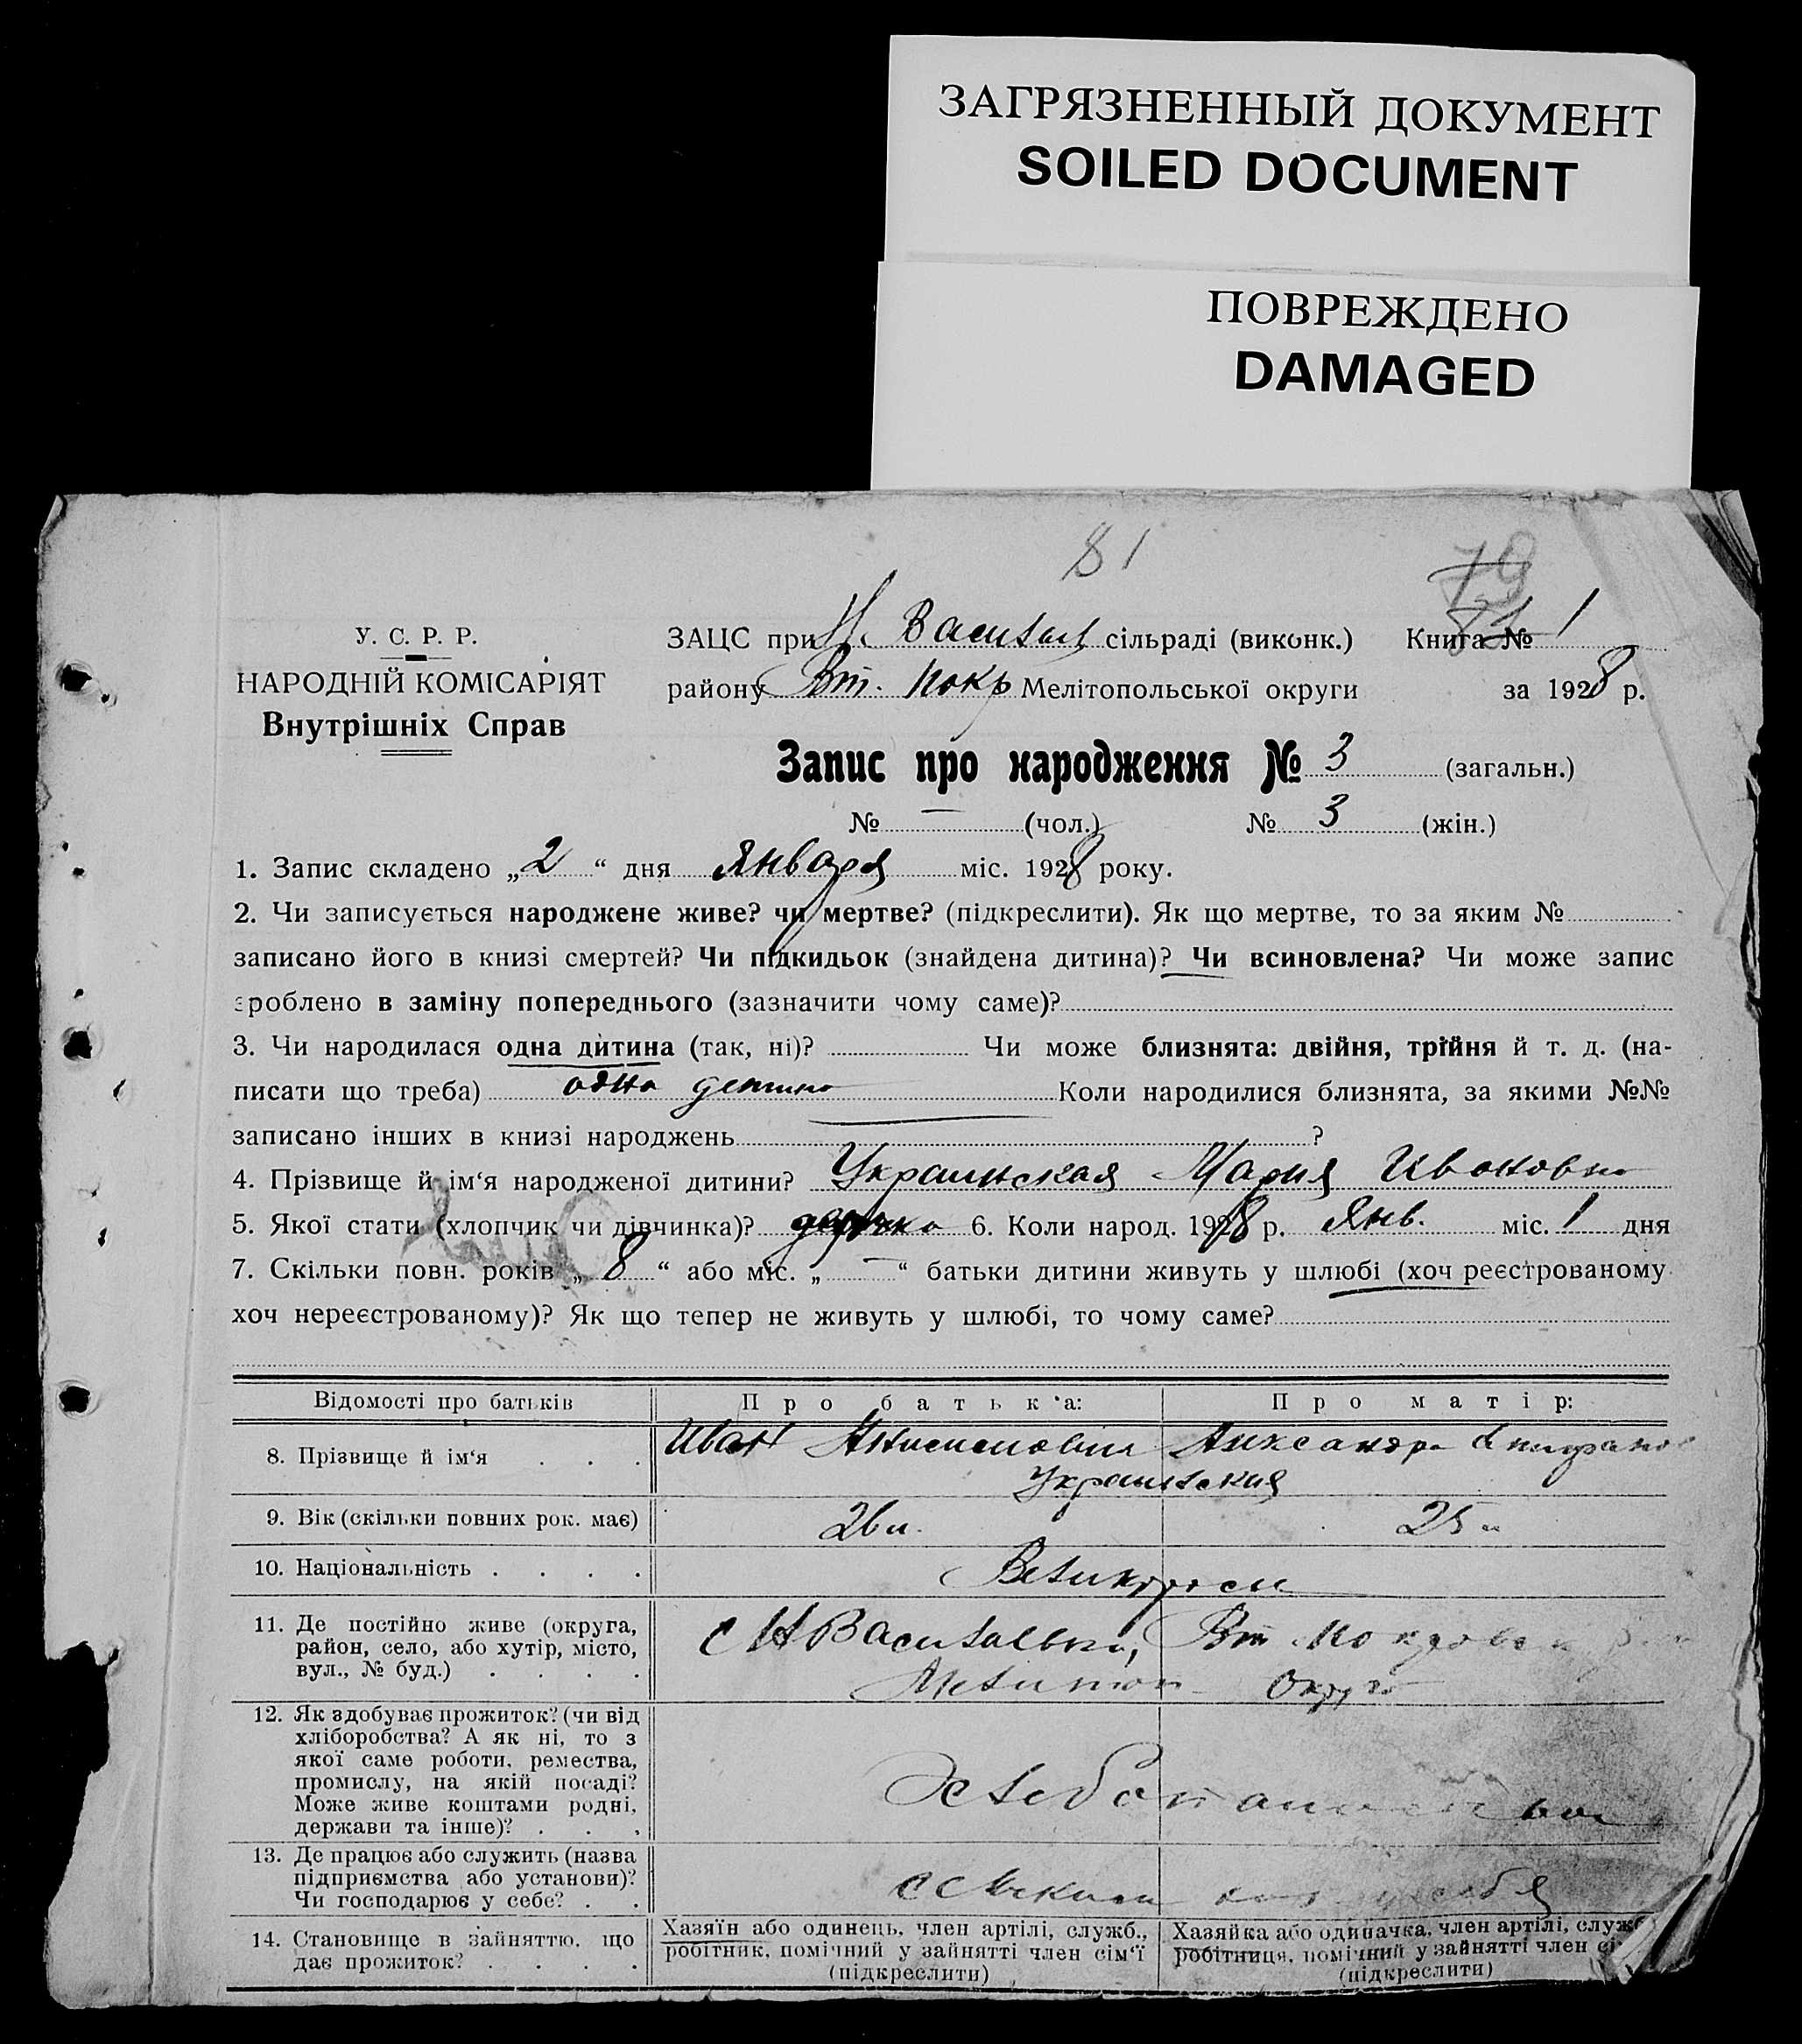 ЗАГРЯЗНЕННЫЙ ДОКУМЕНТ
SOILED DOCUMENT
ПОВРЕЖДЕНО
DAMAGED
81
79
У. С. Р. Р.
НАРОДНІЙ КОМІСАРІЯТ
Внутрішніх Справ
ЗАЦС при Н. Васильев сільраді (виконк.) Книга № 1
району Вт. Покр Мелітопольської округи за 1928 р.
Запис про народження № 3 (загальн.)
№ — (чол.) № 3 (жін.)
1. Запис складено „2“ дня Января міс. 1928 року.
2. Чи записується народжене живе? чи мертве? (підкреслити). Як що мертве, то за яким №
записано його в книзі смертей? Чи підкидьок (знайдена дитина)? Чи всиновлена? Чи може запис
зроблено в заміну попереднього (зазначити чому саме)?
3. Чи народилася одна дитина (так, ні)? Чи може близнята: двійня, трійня й т. д. (на-
писати що треба) одна дитина Коли народилися близнята, за якими №№
записано інших в книзі народжень ?
4. Прізвище й ім‘я народженої дитини? Украинская Мария Ивановна
5. Якої стати (хлопчик чи дівчинка)? 6. Коли народ. 1928 р. Янв. міс. 1 дня
7. Скільки повн. років „8“ або міс. „—“ батьки дитини живуть у шлюбі (хоч реєстрованому
хоч нереєстрованому)? Як що тепер не живуть у шлюбі, то чому саме?
Відомості про батьків Про батьк‘а: Про матір:
8. Прізвище й ім‘я Иван Александра
Украинския
9. Вік (скільки повних рок. має) 26 л. 25 л
10. Національність Великороси
11. Де постійно живе (округа,
район, село, або хутір, місто,
вул., № буд.)
с Н Васильевки, Вт. Покровск
Мелитоп Округа
12. Як здобуває прожиток? (чи від
хліборобства? А як ні, то з
якої саме роботи, ремества,
промислу, на якій посаді?
Може живе коштами родні,
держави та інше)?
Хлебопашеством
13. Де працює або служить (назва
підприємства або установи)?
Чи господарює у себе?
14. Становище в зайняттю, що
дає прожиток?
Хазяїн або одинець, член артілі, служб.,
робітник, помічний у зайнятті член сім‘ї
(підкреслити)
Хазяйка або одиначка, член артілі, служб
робітниця, помічний у зайнятті член сі
(підкреслити)